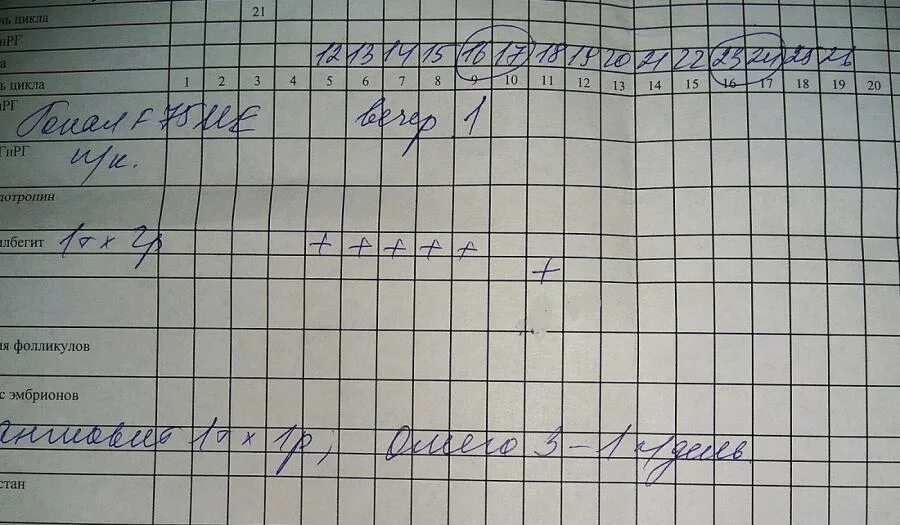 нь цикла 21
нРГ
а 12 13 14 15 16 17 18 19 20 21 22 23 24 25 26
ь цикла 1 2 3 4 5 6 7 8 9 10 11 12 13 14 15 16 17 18 19 20
нРГ Гонал F 75 МЕ вечер 1
ГнРГ п/к.
дотропин
лбегит 1т х 2р + + + + +
+
ия фолликулов
с эмбрионов
ангиовит 1т х 1р; Омега 3 – 1 день
стан